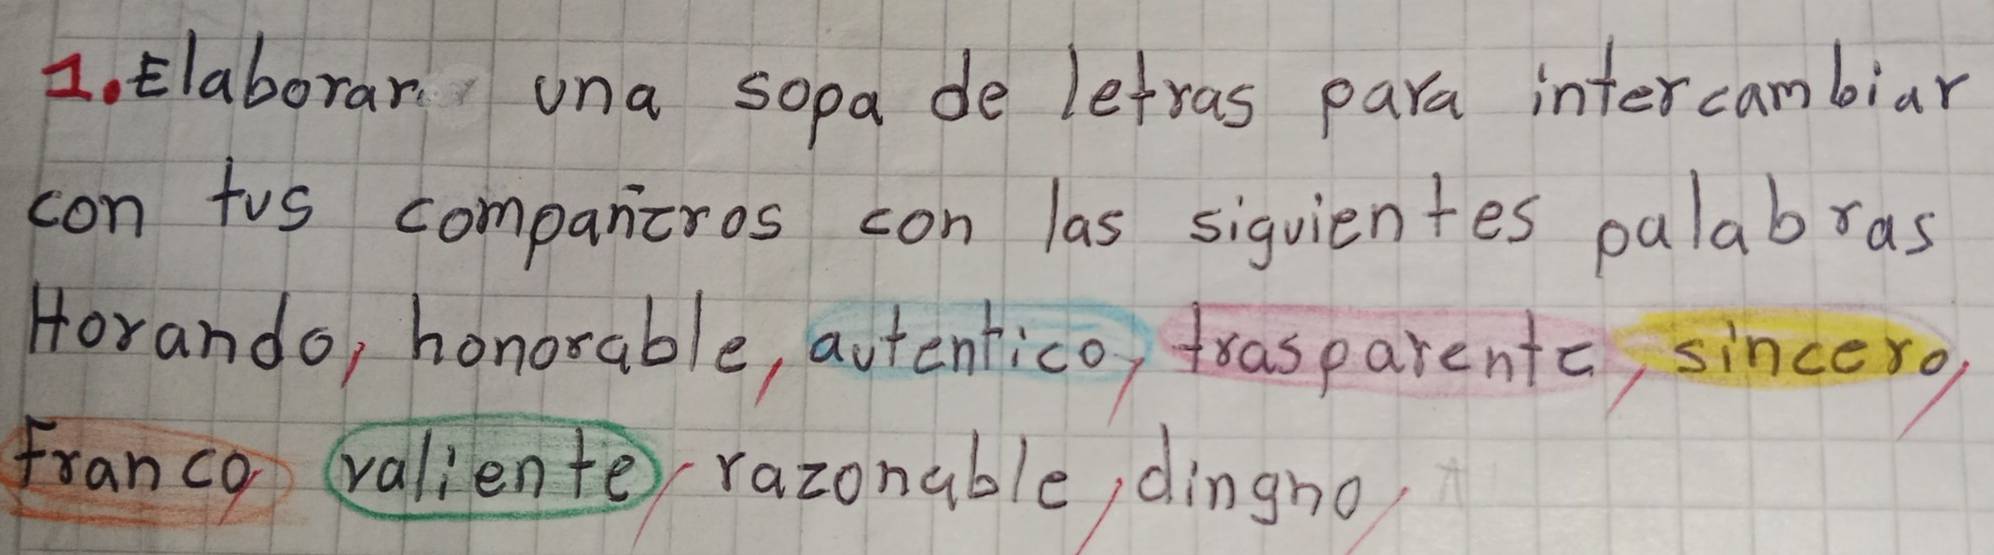 1. Elaborar una sopa de letras para intercambiar
con tus compañeros con las siguientes palabras
Horando, honorable, autentico, trasparente, sincero,
Franco, valiente, razonable, dingno,